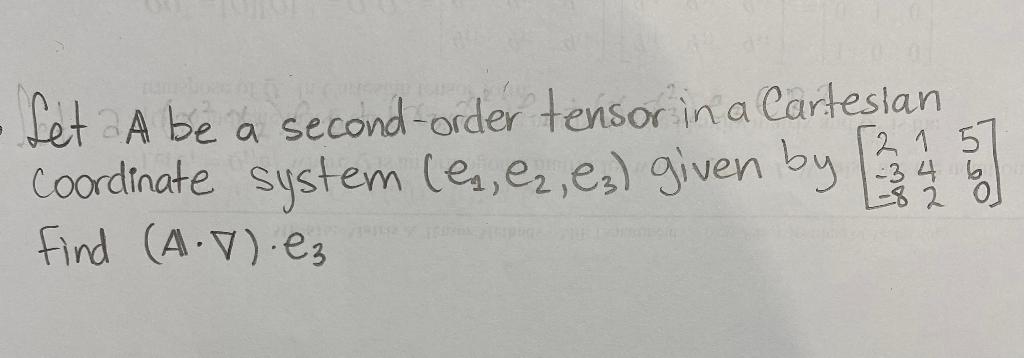 Let A be a second-order tensor in a Cartesian
Coordinate system (e₁,e₂,e₃) given by [2 1 5
-3 4 6
-8 2 0]
Find (A·∇)·e₃